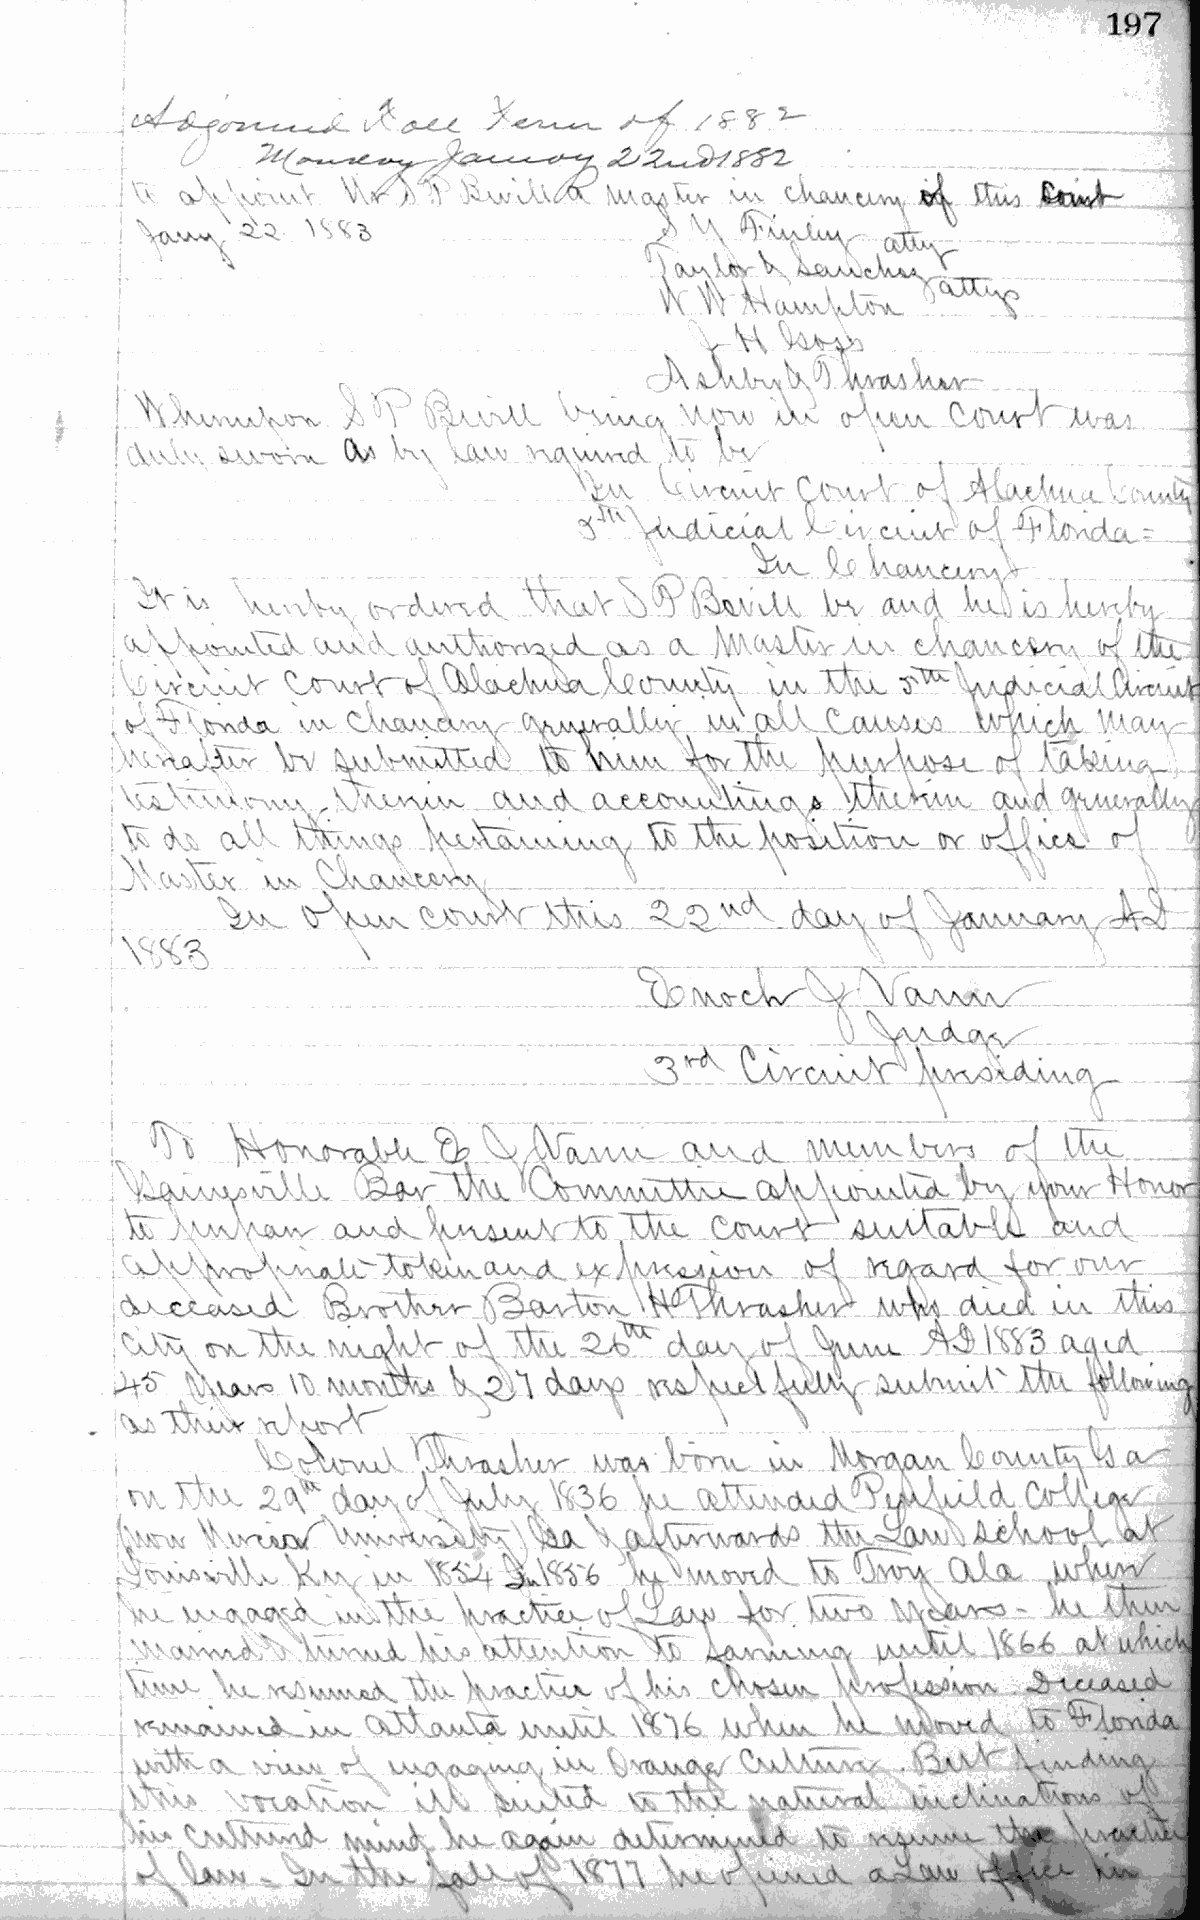 197
Adjourned Fall Term of 1882
Monday January 22nd 1882
to appoint Mr S P Bevill a Master in chancery of this Court
Jany 22 1883
S Y Finley atty
Taylor & Sanchez attys
W W Hampton
J H Goss
Ashby & Thrasher
Whereupon S P Bevill being now in open Court was
duly sworn as by law required to be
In Circuit Court of Alachua County
5th Judicial Circuit of Florida =
In Chancery
It is hereby ordered that S P Bevill be and he is hereby
appointed and authorized as a Master in chancery of the
Circuit Court of Alachua County in the 5th Judicial Circuit
of Florida in Chancery generally in all Causes which may
hereafter be submitted to him for the purpose of taking
testimony therein and accountings therein and generally
to do all things pertaining to the position or office of
Master in Chancery
In open court this 22nd day of January AD
1883
Enoch J Vann
Judge
3rd Circuit presiding
To Honorable E J Vann and members of the
Gainesville Bar the Committee appointed by your Honor
to prepare and present to the court suitable and
appropriate token and expression of regard for our
deceased Brother Barton H Thrasher who died in this
City on the night of the 26th day of June AD 1883 aged
45 years 10 months & 27 days respectfully submit the following
as their report
Colonel Thrasher was born in Morgan County Ga
on the 29th day of July 1836 he attended Penfield College
(now Mercer University) Ga & afterwards the Law School at
Louisville Ky in 1854 In 1856 he moved to Troy Ala where
he engaged in the practice of Law for two years - he then
married & turned his attention to farming until 1866 at which
time he resumed the practice of his chosen profession Deceased
remained in Atlanta until 1876 when he moved to Florida
with a view of engaging in Orange Culture. But finding
this vocation ill suited to the natural inclinations of
his cultured mind he again determined to resume the practice
of law - In the fall of 1877 he opened a Law office in